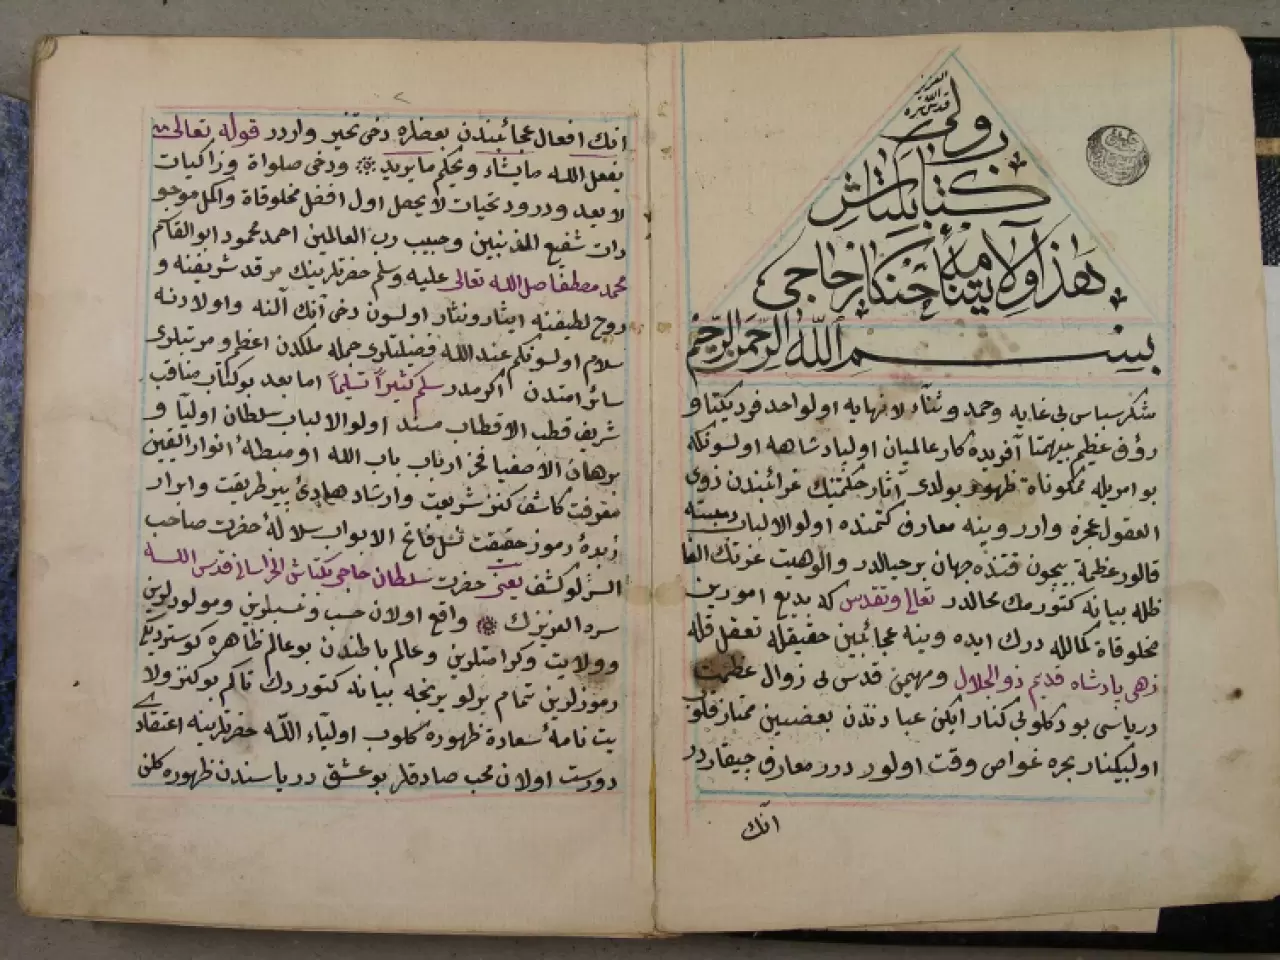 العزيز
قدس الله سره
و ولی
كتاب بكتاش
هذا ولايتنامهٔ خنكار حاجی
بسم الله الرحمن الرحيم
شكر سپاس بی غايه وحمد وثنآء لا نهايه اول واحد فرد يكتا و
رؤف عظيم بيهمتا آفريدهٔ كار عالميان اولياد شاهه اولسونكه
بو امريله مكوناة ظهوره بولدی آثار حكمتنك غرائبندن ذوی
العقول عجزه وارر وينه معارف كتمنده اولو الالباب
قالور عظمة بيچون قتنده جهان بر جبالدر والوهيت عزتك الفا
ظله بيانه كتورمك محالدر تعالی وتقدس كه بديع امورين
مخلوقاة كمالله درك ايده وينه عجائبين حقيقله تعقل قله
زهی پادشاه قديم ذو الجلال ومهيمن قدس بی زوال عظمت
درياسی بودكلو بی كنار ايكن عبادندن بعضيين ممتاز قلو
اول بيكنار بحره غواص وقت اولور درر معارف چيقاردر
انك
انك افعال عجائبندن بعضلره دخی تخير واردر قوله تعالی
يفعل الله مايشاء ويحكم مايريد ودخی صلواة وزاكيات
لا يعد ودرود تحيات لا يحصل اول افضل مخلوقاة واكمل موجو
دات شفيع المذنبين وحبيب رب العالمين احمد محمود ابو القاسم
محمد مصطفا صل الله تعالی عليه وسلم حضرتلرينك مرقد شريفنه و
روح لطيفنه ايثار ونثار اولسون دخی آنك آلنه واولادنه
سلام اولسونكم عند الله فضيلتلری جمله ملكدن اعظم ومرتبلری
سائر امتدن اكرمدر سلم كثيراً تسليماً اما بعد بو كتاب مناقب
شريف قطب الاقطاب مسند اولو الالباب سلطان اوليآ و
برهان الاصفيا فخر ارباب باب الله اومبطلهٔ انوار اليقين
معرفت كاشف كنوز شريعت وارشاد هادیٔ پير طريقت وابرار
زبدهٔ رموز حقيقت فاتح الابواب سلالهٔ حضرت صاحب
السر لو كشف يعنی حضرت سلطان حاجی بكتاش الخراسانی قدس الله
سره العزيزك واقع اولان حسب ونسبلرين ومولودلرين
وولايت وكراماتلرين وعالم باطندن بو عالم ظاهره كوستردكی
رموزلرين تمام يرلو يرنجه بيانه كتوردك تاكم بو كنز ولا
يت نامهٔ سعادة ظهوره كلوب اولياء الله حضرتلرينه اعتقاد
دوست اولان محب صادقلر بو عشق درياسندن ظهوره كلنی